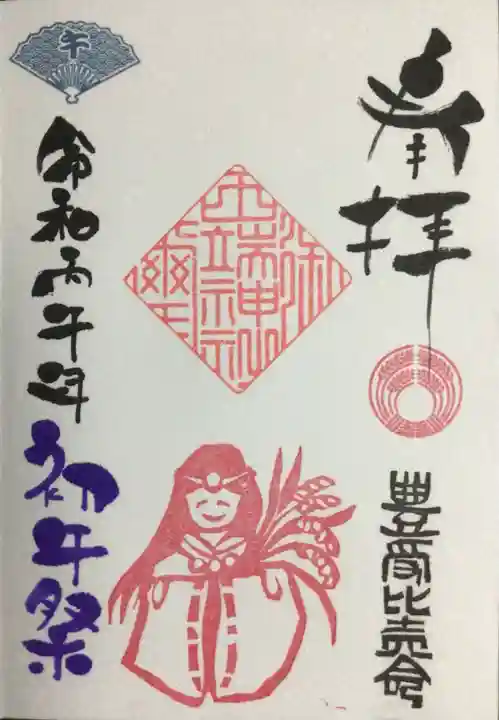 奉拝
豊受比売命
午
令和丙午年
初午祭